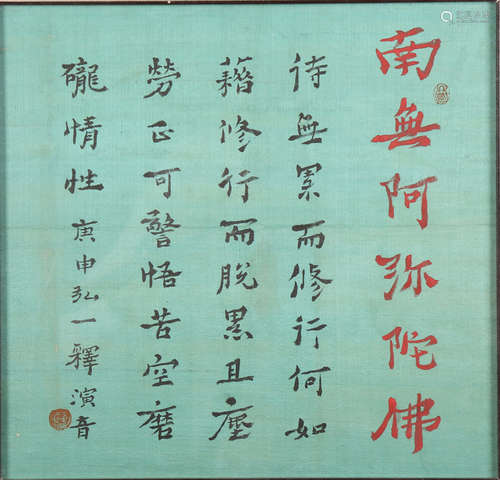 南無阿弥陀佛
待無累而修行何如
藉修行而脫累且塵
勞正可警悟苦空磨
礲情性 庚申弘一釋演音